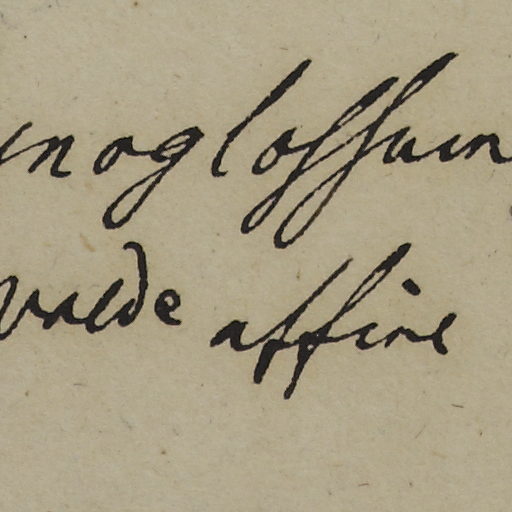 ynoglossum
valde affine